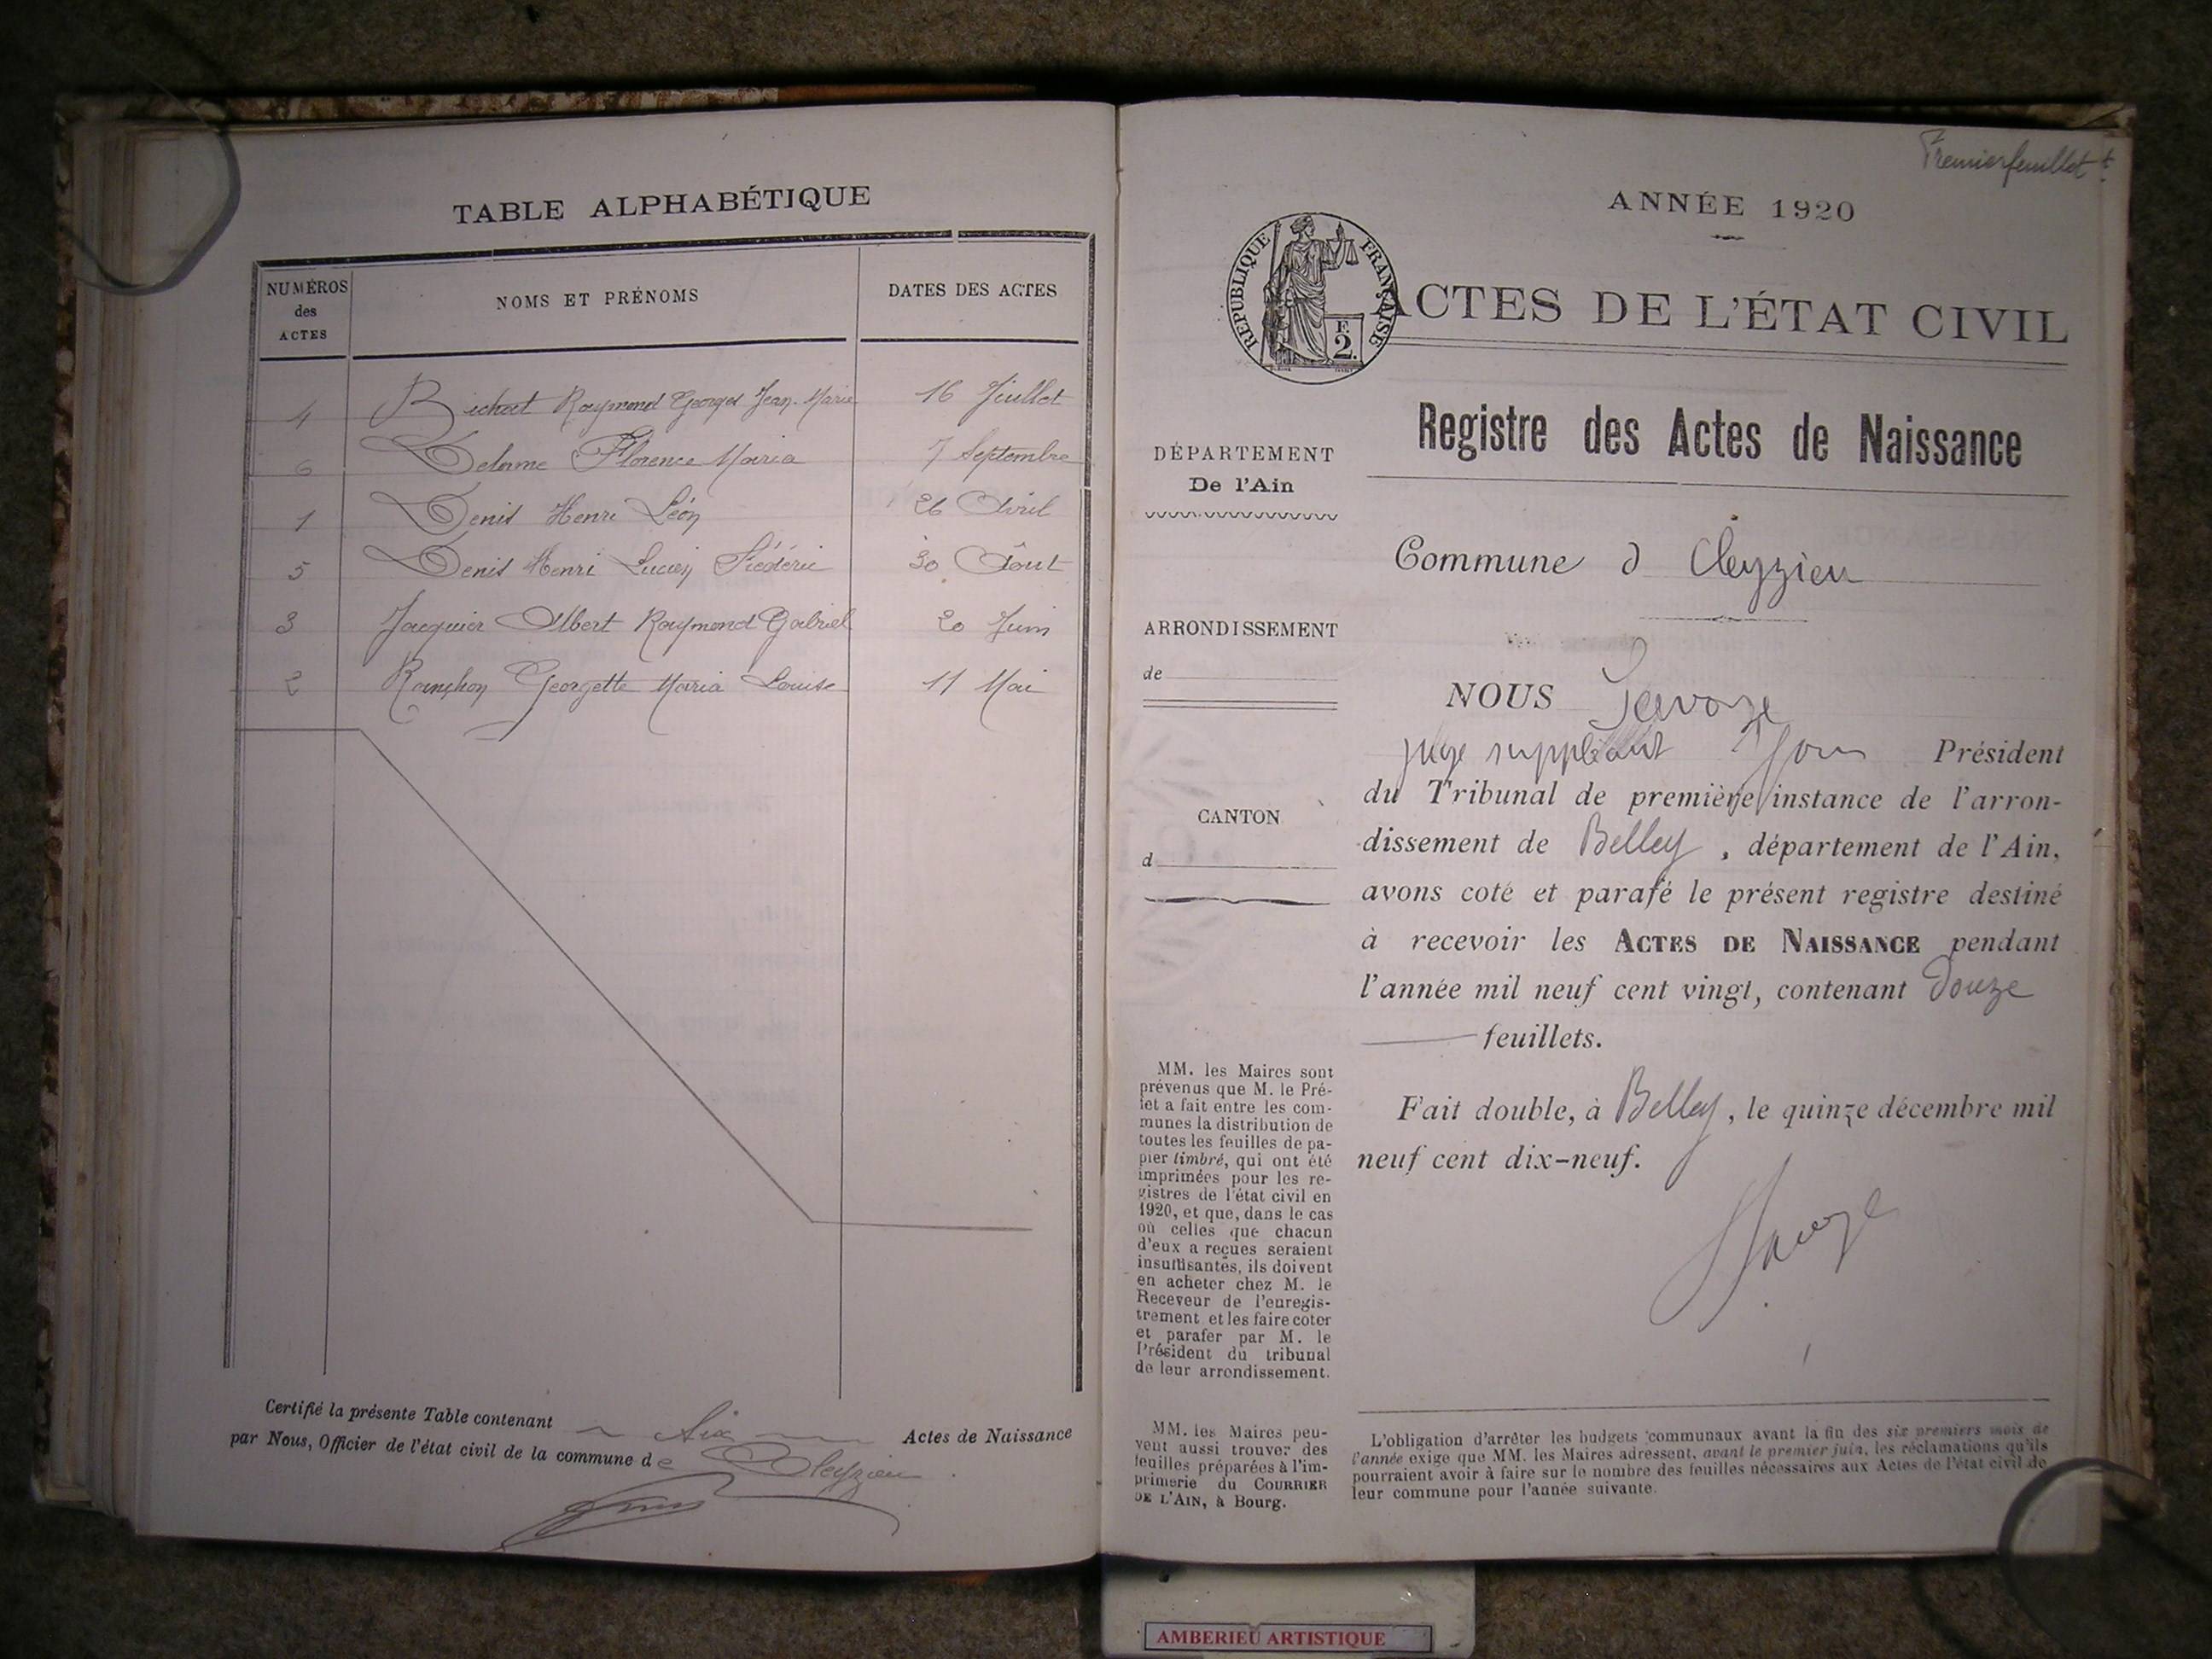 TABLE ALPHABÉTIQUE
NUMÉROS des ACTES
NOMS ET PRÉNOMS
DATES DES ACTES
4 Bichat Raymond Georges Jean-Marie 16 Juillet
6 Delorme Florence Maria 7 Septembre
1 Denis Henri Léon 26 Avril
5 Denis Henri Lucien Frédéric 30 Août
3 Jacquier Albert Raymond Gabriel 20 Juin
2 Georgette Maria Louise 11 Mai
Certifié la présente Table contenant Six Actes de Naissance
par Nous, Officier de l'état civil de la commune de Cleyzieu
Premier feuillet
ANNÉE 1920
RÉPUBLIQUE FRANÇAISE
F.
2.
ACTES DE L'ÉTAT CIVIL
Registre des Actes de Naissance
DÉPARTEMENT
De l'Ain
Commune d Cleyzieu
ARRONDISSEMENT
de
CANTON
d
NOUS
juge suppléant Président
du Tribunal de première instance de l'arron-
dissement de Belley, département de l'Ain,
avons coté et parafé le présent registre destiné
à recevoir les ACTES DE NAISSANCE pendant
l'année mil neuf cent vingt, contenant Douze
feuillets.
Fait double, à Belley, le quinze décembre mil
neuf cent dix-neuf.
MM. les Maires sont
prévenus que M. le Pré-
fet a fait entre les com-
munes la distribution de
toutes les feuilles de pa-
pier timbré, qui ont été
imprimées pour les re-
gistres de l'état civil en
1920, et que, dans le cas
où celles que chacun
d'eux a reçues seraient
insuffisantes, ils doivent
en acheter chez M. le
Receveur de l'enregis-
trement et les faire coter
et parafer par M. le
Président du tribunal
de leur arrondissement.
MM. les Maires peu-
vent aussi trouver des
feuilles préparées à l'im-
primerie du COURRIER
DE L'AIN, à Bourg.
L'obligation d'arrêter les budgets communaux avant la fin des six premiers mois de
l'année exige que MM. les Maires adressent, avant le premier juin, les réclamations qu'ils
pourraient avoir à faire sur le nombre des feuilles nécessaires aux Actes de l'état civil de
leur commune pour l'année suivante.
AMBERIEU ARTISTIQUE